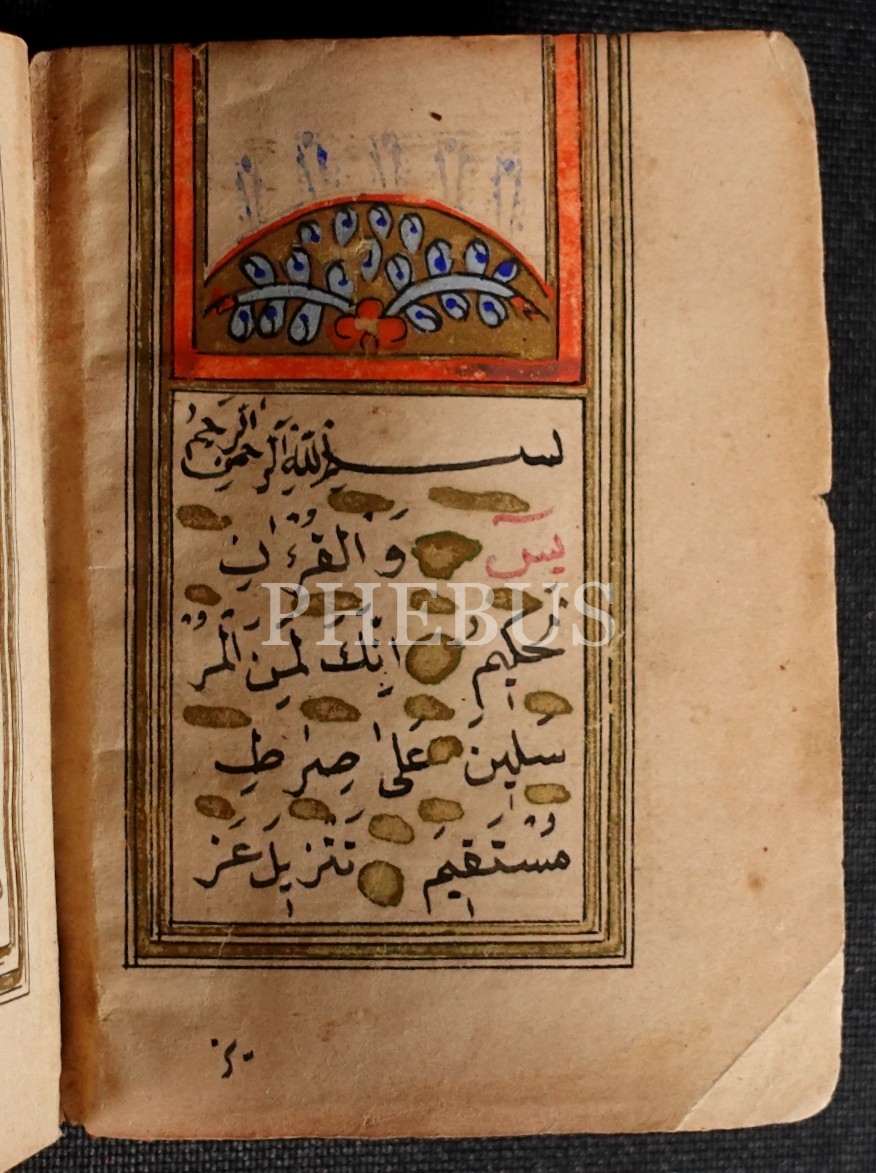 بسم الله الرحمن الرحيم
يس وَالْقُرْءَانِ
الْحَكِيمِ اِنَّكَ لَمِنَ الْمُرْ
سَلِينَ عَلَى صِرَاطٍ
مُسْتَقِيمٍ تَنْزِيلَ
PHEBUS